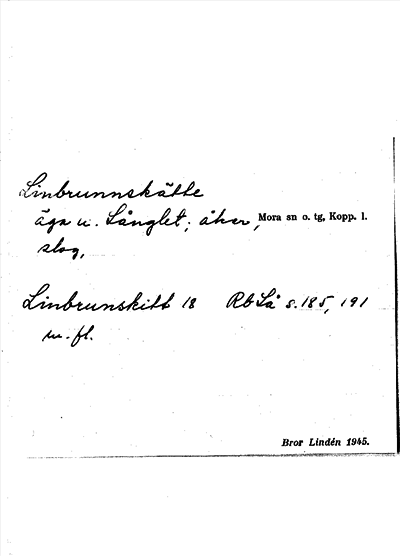 Linbrunnskätte
äga u. Långlet; åker, Mora sn o. tg, Kopp. l.
slog,
Linbrunskitt 18 Rb Lå s. 185, 191
m. fl.
Bror Lindén 1945.